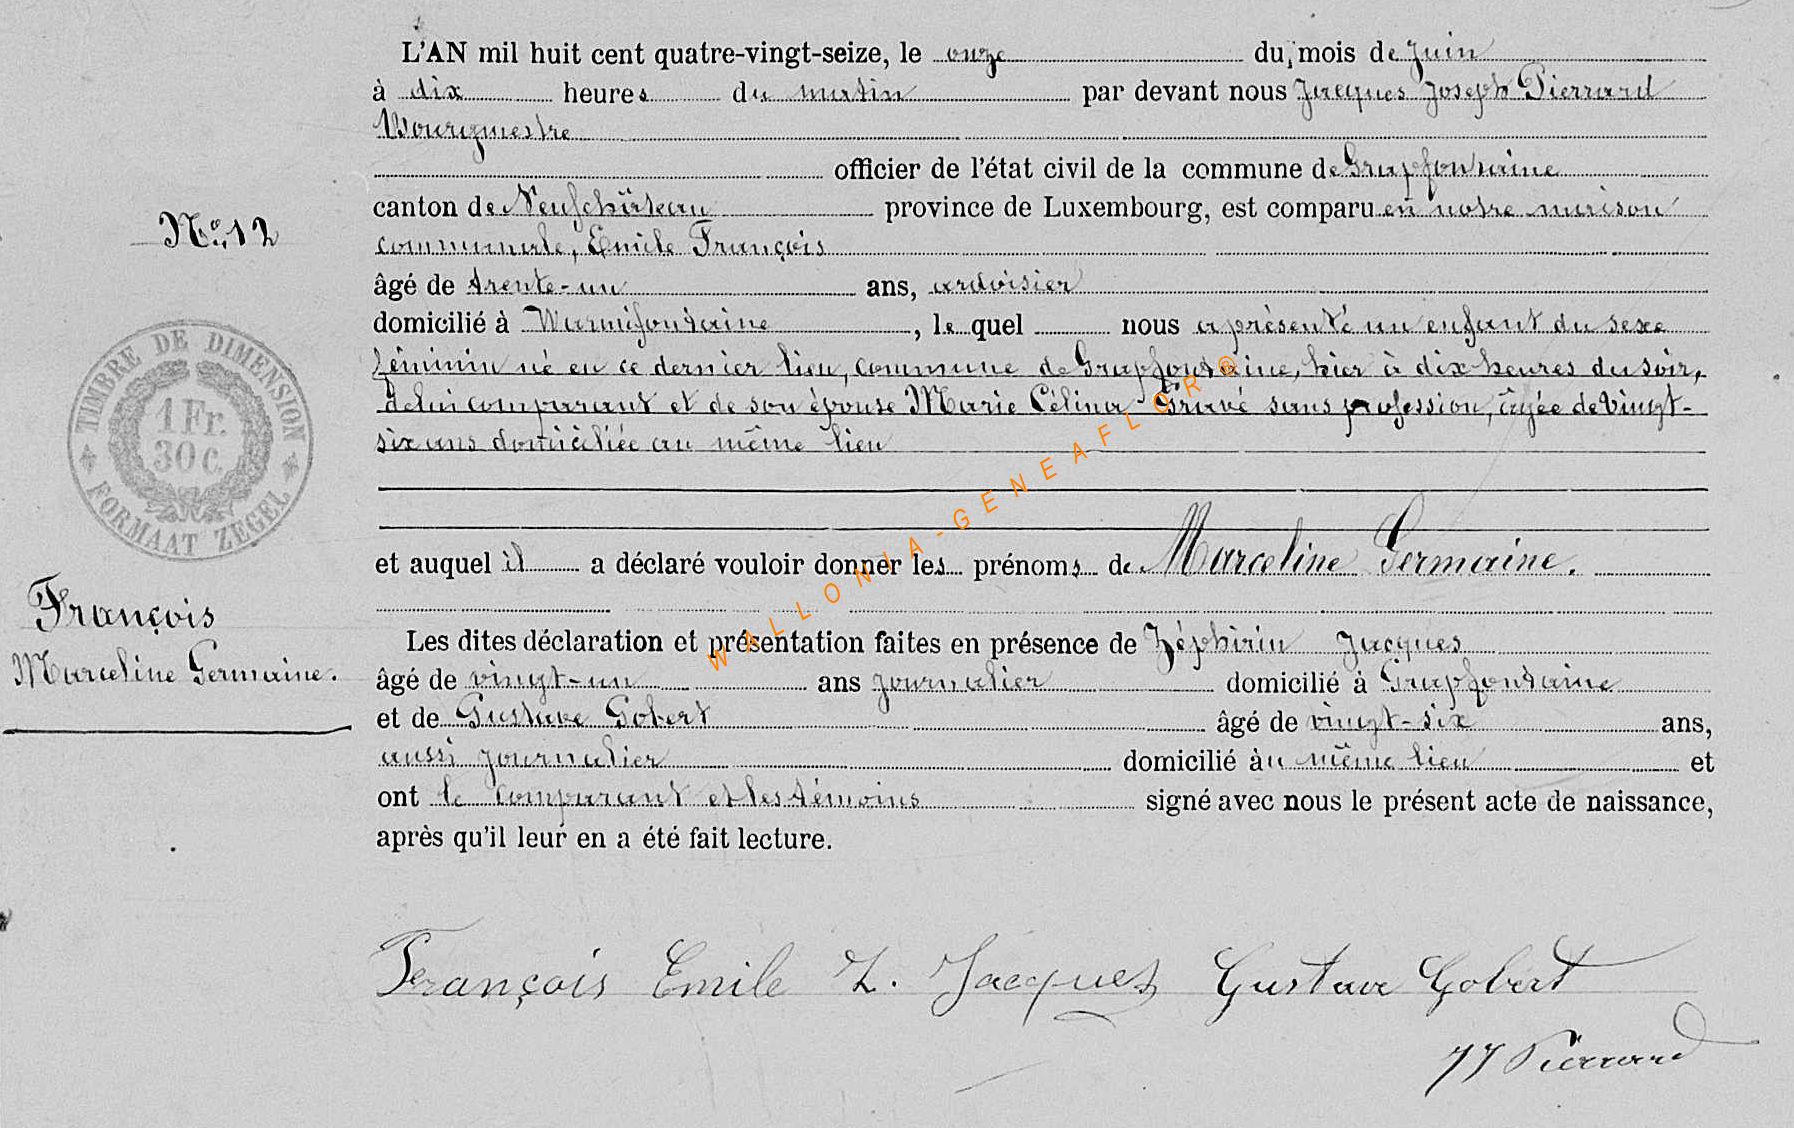 L'AN mil huit cent quatre-vingt-seize, le onze du mois de Juin
à dix heures du matin par devant nous Jacques Joseph Pierrard
Bourgmestre
officier de l'état civil de la commune de Grapfontaine
canton de Neufchâteau province de Luxembourg, est comparu en notre maison
communale, Emile François
âgé de trente-un ans, ardoisier
domicilié à Warmifontaine, lequel nous a présenté un enfant du sexe
féminin né en ce dernier lieu, commune de Grapfontaine, hier à dix heures du soir,
de lui comparant et de son épouse Marie Célina Gravé sans profession, âgée de vingt-
six ans domiciliée au même lieu
et auquel il a déclaré vouloir donner les prénoms de Marceline Germaine.
Les dites déclaration et présentation faites en présence de Zéphirin Jacques
âgé de vingt-un ans journalier domicilié à Grapfontaine
et de Gustave Gobert âgé de vingt-six ans,
aussi journalier domicilié au même lieu et
ont le comparant et les témoins signé avec nous le présent acte de naissance,
après qu'il leur en a été fait lecture.
François Emile Z. Jacques Gustave Gobert
JJ Pierrard
No. 12
TIMBRE DE DIMENSION
1 Fr.
30 c.
FORMAAT ZEGEL
François
Marceline Germaine.
WALLONIA-GENEAFLOR®